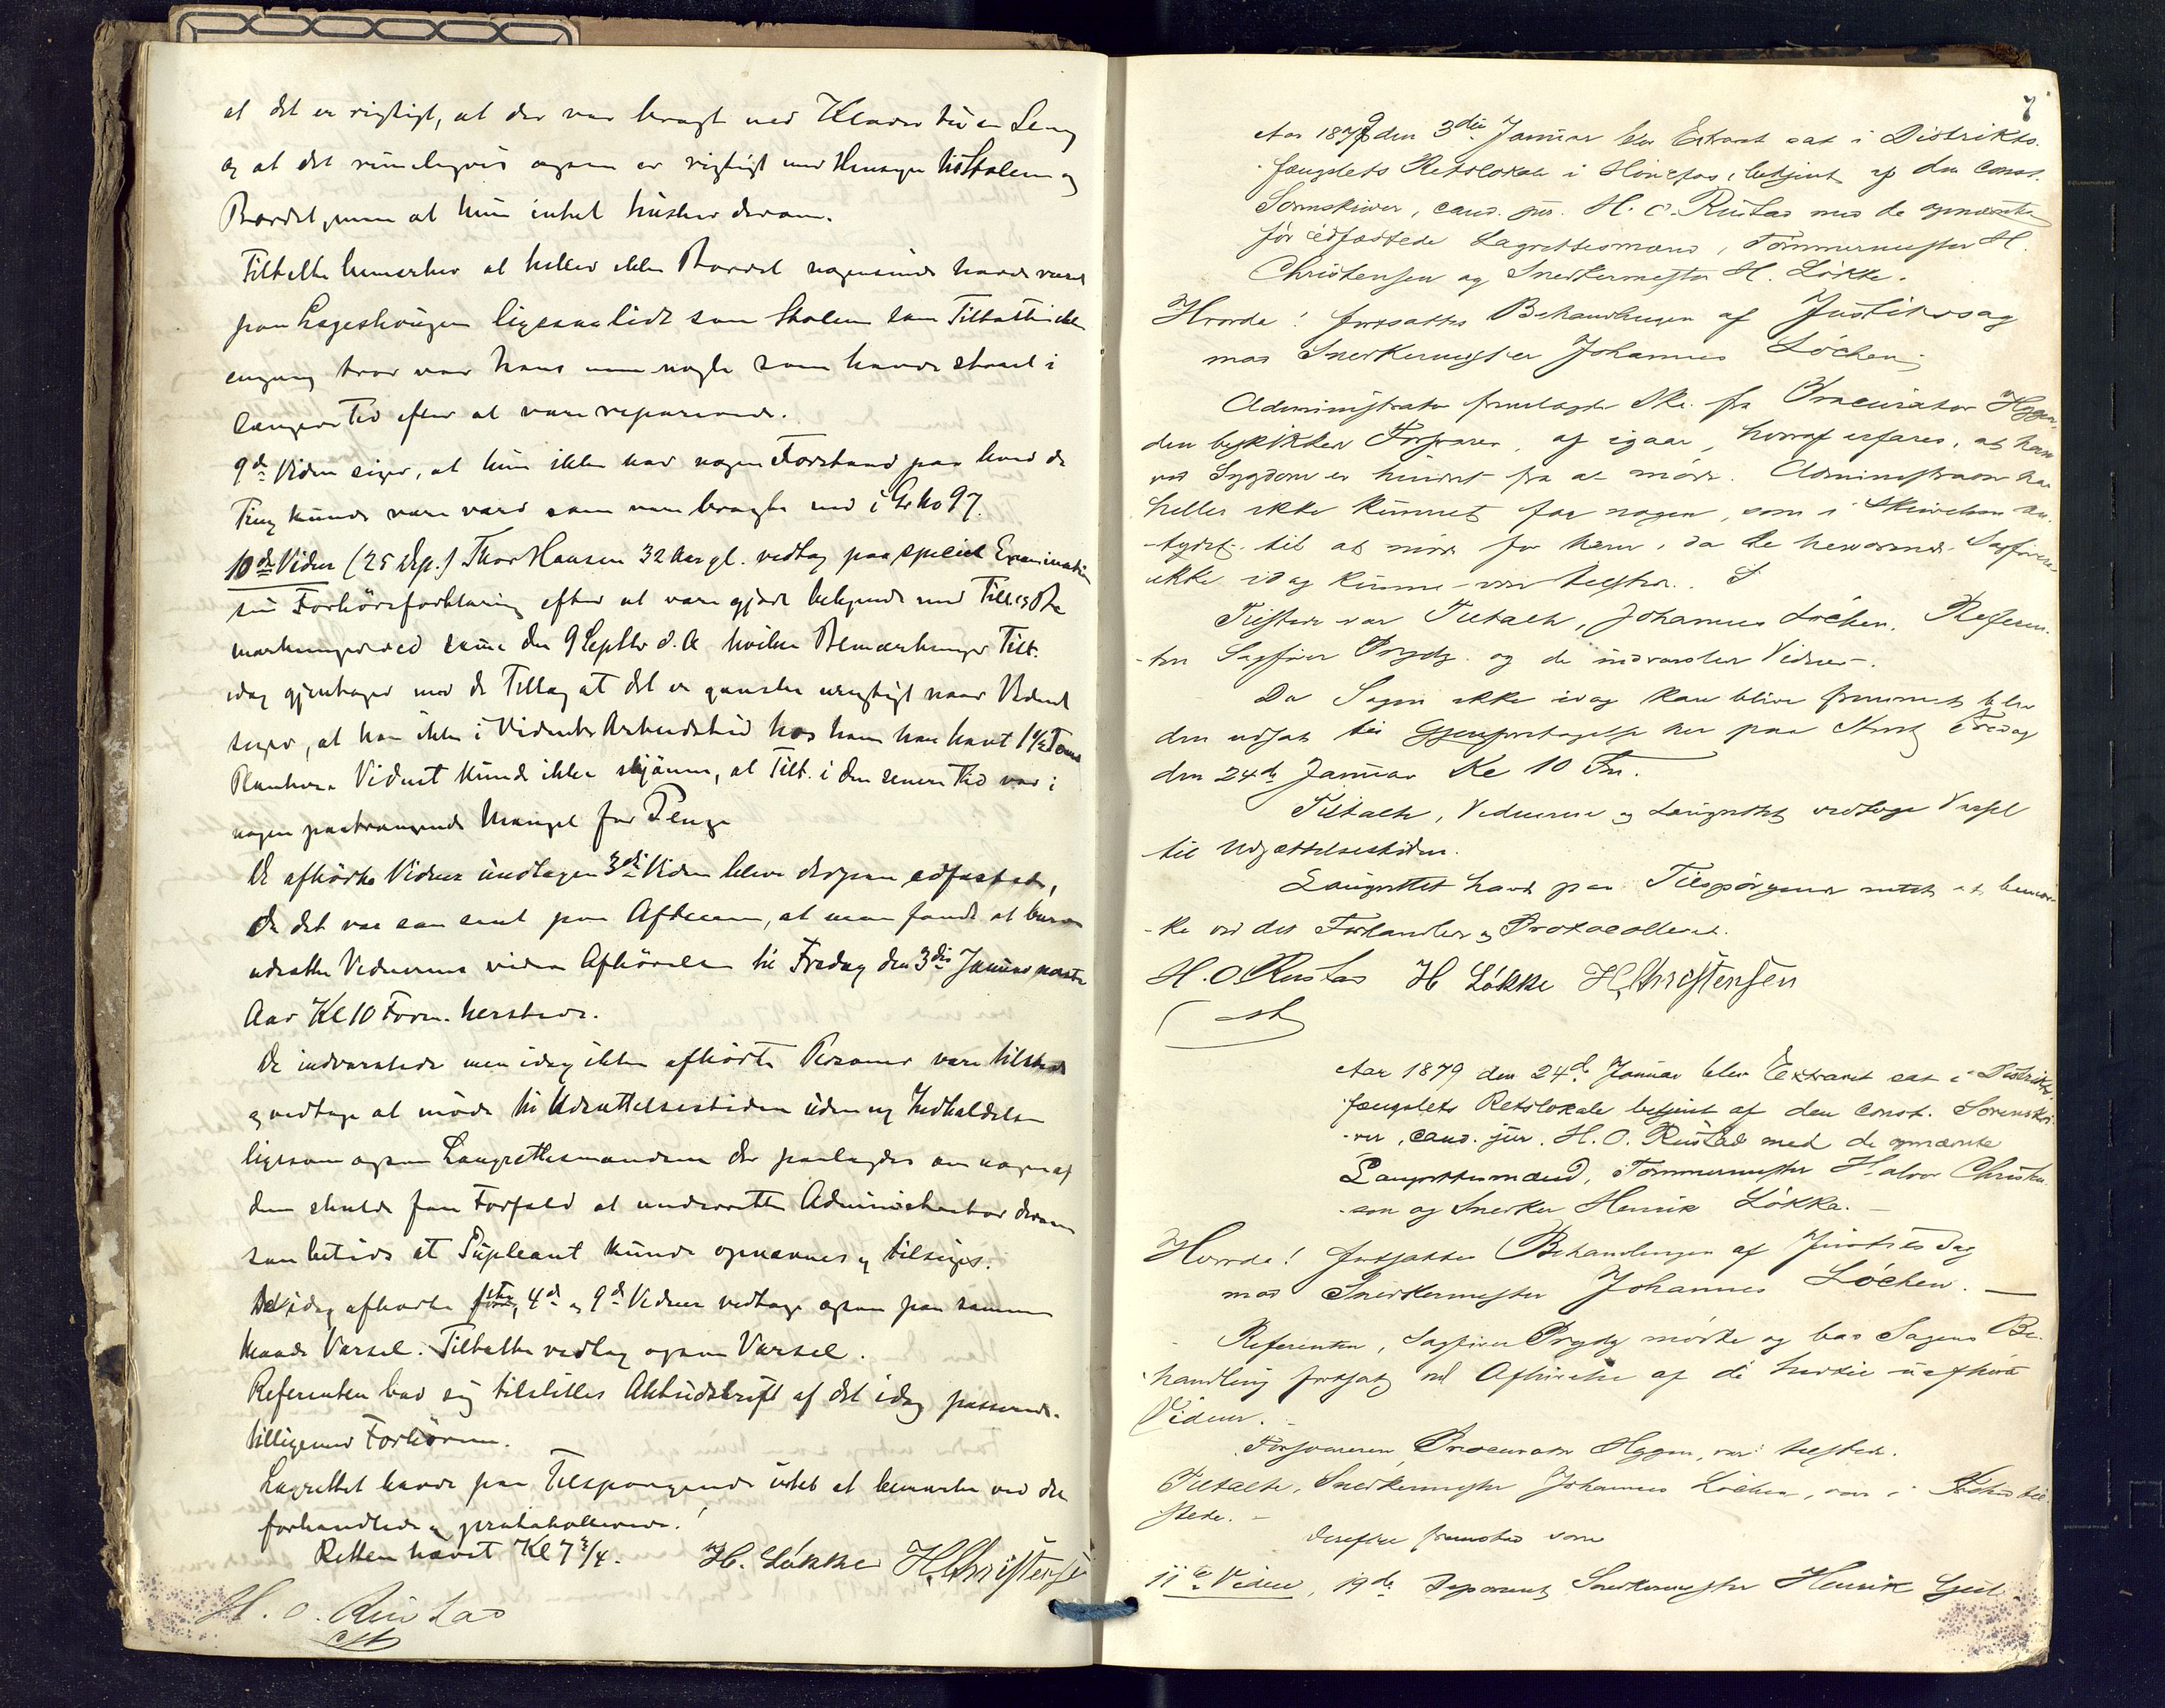 at det er rigtigt, at der var bragt ned Klæder til en Seng
og at det rimeligvis ogsaa er rigtigt med Hensyn til Stolene og
Bordet, men at hun intet husker derom.
Tiltalte bemærker at heller ikke Bordet nogensinde havde været
paa ligesaalidt som Stolene som Tiltalte ikke
engang tror var hans men nogle som havde staaet i
længere Tid efter at være reparerede.
9de Vidne siger, at hun ikke har nogen Forstand paa hvad de
Ting kunde være værd som var bragte ned i
10de Vidne (25 Dep.) Thor Hansen 32 Aar gl. vedtog paa speciel Examination
sin Forhørsforklaring efter at være gjort bekjendt med Tilt.s Be
mærkninger ved samme den 9 Septbr d. A. hvilke Bemærkninger Tilt.
idag gjentager med de Tillæg at det er ganske urigtigt naar Vidnet
siger, at han ikke i Vidnets Arbeidstid hos ham har havt 1½ Toms
Planker. Vidnet kunde ikke skjønne, at Tilt. i den senere Tid var i
nogen paatrængende Mangel for Penge
De afhørte Vidner undtagen 3die Vidne bleve derpaa edfæstede,
da det var saa sent paa Aftenen, at man fandt at burde
udsætte Vidnernes videre Afhørelse til Fredag den 3die Januar næste
Aar Kl 10 Form. hersteds.
De indvarslede men idag ikke afhørte Personer vare tilstede
og vedtoge at møde til Udsættelsestiden uden ny Indkaldelse
ligesom ogsaa Laugrettesmændene der paalagdes om nogen af
dem skulde faa Forfald at underrette Administrator derom
saa betids at Supleant kunde opnævnes og tilsiges.
De idag afhørte 1ste, 4de og 9de Vidner vedtoge ogsaa paa samme
Maade Varsel. Tiltalte vedtog ogsaa Varsel.
Referenten bad sig tilstillet Aktudskrift af det idag passerede
tilligemed Forhøret.
Lagrettet havde paa Tilspørgende intet at bemærke ved det
forhandlede og protokollerede.
Retten hævet Kl 7¾.
H. Løkke H. Christensen
H. O. Rustad
cst
7
Aar 1879 den 3die Januar blev Extraret sat i Distrikts-
fængslets Retslokale i Hönefos, betjent af den const.
Sorenskriver, cand. jur. H. O. Rustad med de opnævnte
før edfæstede Lagrettesmænd, Tømmermester H.
Christensen og Snedkermester H. Løkke.
Hvorda! fortsattes Behandlingen af Justitssag
mod Snedkermester Johannes Löchen,
Administrator fremlagde Skr. fra Procurator Hyggen,
den beskikkede Forsvarer, af igaar, hvoraf erfares, at han
ved Sygdom er hindret fra at møde. Administrator har
heller ikke kunnet faa nogen, som i Skrivelsen an-
tydet, til at møde for ham, da de herværende Sagførere
ikke idag kunne være tilstede.
Tilstede var Tiltalte, Johannes Löchen, Referen-
ten Sagfører Prydz og de indvarslede Vidner.
Da Sagen ikke idag kan blive fremmet blev
den udsat til Gjenforetagelse her paa Sted Fredag
den 24de Januar Kl 10 Fm.
Tiltalte, Vidnerne og Laugrettet vedtoge Varsel
til Udsættelsestiden.
Laugrettet havde paa Tilspørgende intet at bemær-
ke ved det Forhandlede og Protocollerede.
H. O. Rustad H Løkke H. Christensen
cst
Aar 1879 den 24de Januar blev Extraret sat i Distrikts-
fængslets Retslokale betjent af den const. Sorenskri-
ver, cand. jur. H. O. Rustad med de opnævnte
Laugrettesmænd, Tømmermester Halvor Christen-
sen og Snedker Henrik Løkke.
Hvorda! fortsattes Behandlingen af Justitssag
mod Snedkermester Johannes Löchen.
Referenten, Sagfører Prydz mødte og bad Sagens Be-
handling fortsat ved Afhørelse af de hertil uafhørte
Vidner.
Forsvareren, Procurator Hyggen, var tilstede.
Tiltalte, Snedkermester Johannes Löchen, var i Retten til-
stede.
Derefter fremstod som
11te Vidne, 19de Deponent, Snedkermester Henrik